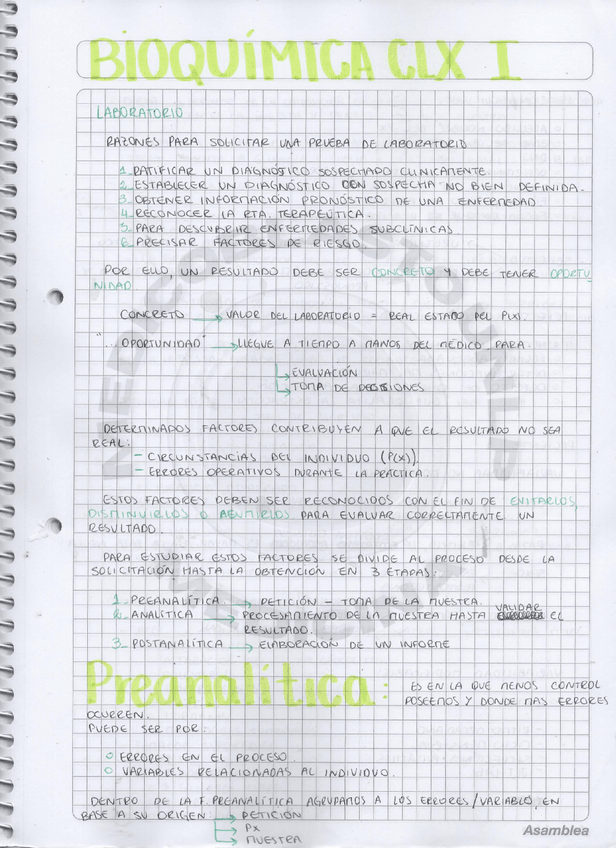 BIOQUÍMICA CLX I
LABORATORIO
RAZONES PARA SOLICITAR UNA PRUEBA DE LABORATORIO
1_RATIFICAR UN DIAGNÓSTICO SOSPECHADO CLINICAMENTE.
2_ESTABLECER UN DIAGNÓSTICO CON SOSPECHA NO BIEN DEFINIDA.
3_OBTENER INFORMACIÓN PRONÓSTICO DE UNA ENFERMEDAD
4_RECONOCER LA RTA. TERAPEÚTICA.
5_PARA DESCUBRIR ENFERMEDADES SUBCLÍNICAS
6_PRECISAR FACTORES DE RIESGO.
POR ELLO, UN RESULTADO DEBE SER CONCRETO Y DEBE TENER OPORTU
NIDAD
CONCRETO → VALOR DEL LABORATORIO = REAL ESTADO DEL P(X).
"...OPORTUNIDAD" → LLEGUE A TIEMPO A MANOS DEL MÉDICO PARA
↳ EVALUACIÓN
↳ TOMA DE DECISIONES
DETERMINADOS FACTORES CONTRIBUYEN A QUE EL RESULTADO NO SEA
REAL:
- CIRCUNSTANCIAS DEL INDIVIDUO (P(X))
- ERRORES OPERATIVOS DURANTE LA PRÁCTICA.
ESTOS FACTORES DEBEN SER RECONOCIDOS CON EL FIN DE EVITARLOS,
DISMINUIRLOS O ADMITIRLOS PARA EVALUAR CORRECTAMENTE UN
RESULTADO.
PARA ESTUDIAR ESTOS FACTORES SE DIVIDE AL PROCESO DESDE LA
SOLICITACIÓN HASTA LA OBTENCIÓN EN 3 ETAPAS:
1_PREANALÍTICA → PETICIÓN - TOMA DE LA MUESTRA.
2_ANALÍTICA → PROCESAMIENTO DE LA MUESTRA HASTA VALIDAR EL
RESULTADO.
3_POSTANALÍTICA → ELABORACIÓN DE UN INFORME
Preanalítica: ES EN LA QUE MENOS CONTROL
POSEEMOS Y DONDE MAS ERRORES
OCURREN.
PUEDE SER POR:
○ ERRORES EN EL PROCESO
○ VARIABLES RELACIONADAS AL INDIVIDUO.
DENTRO DE LA F. PREANALÍTICA AGRUPAMOS A LOS ERRORES/VARIABLES, EN
BASE A SU ORIGEN → PETICIÓN
↳ PX
↳ MUESTRA
Asamblea